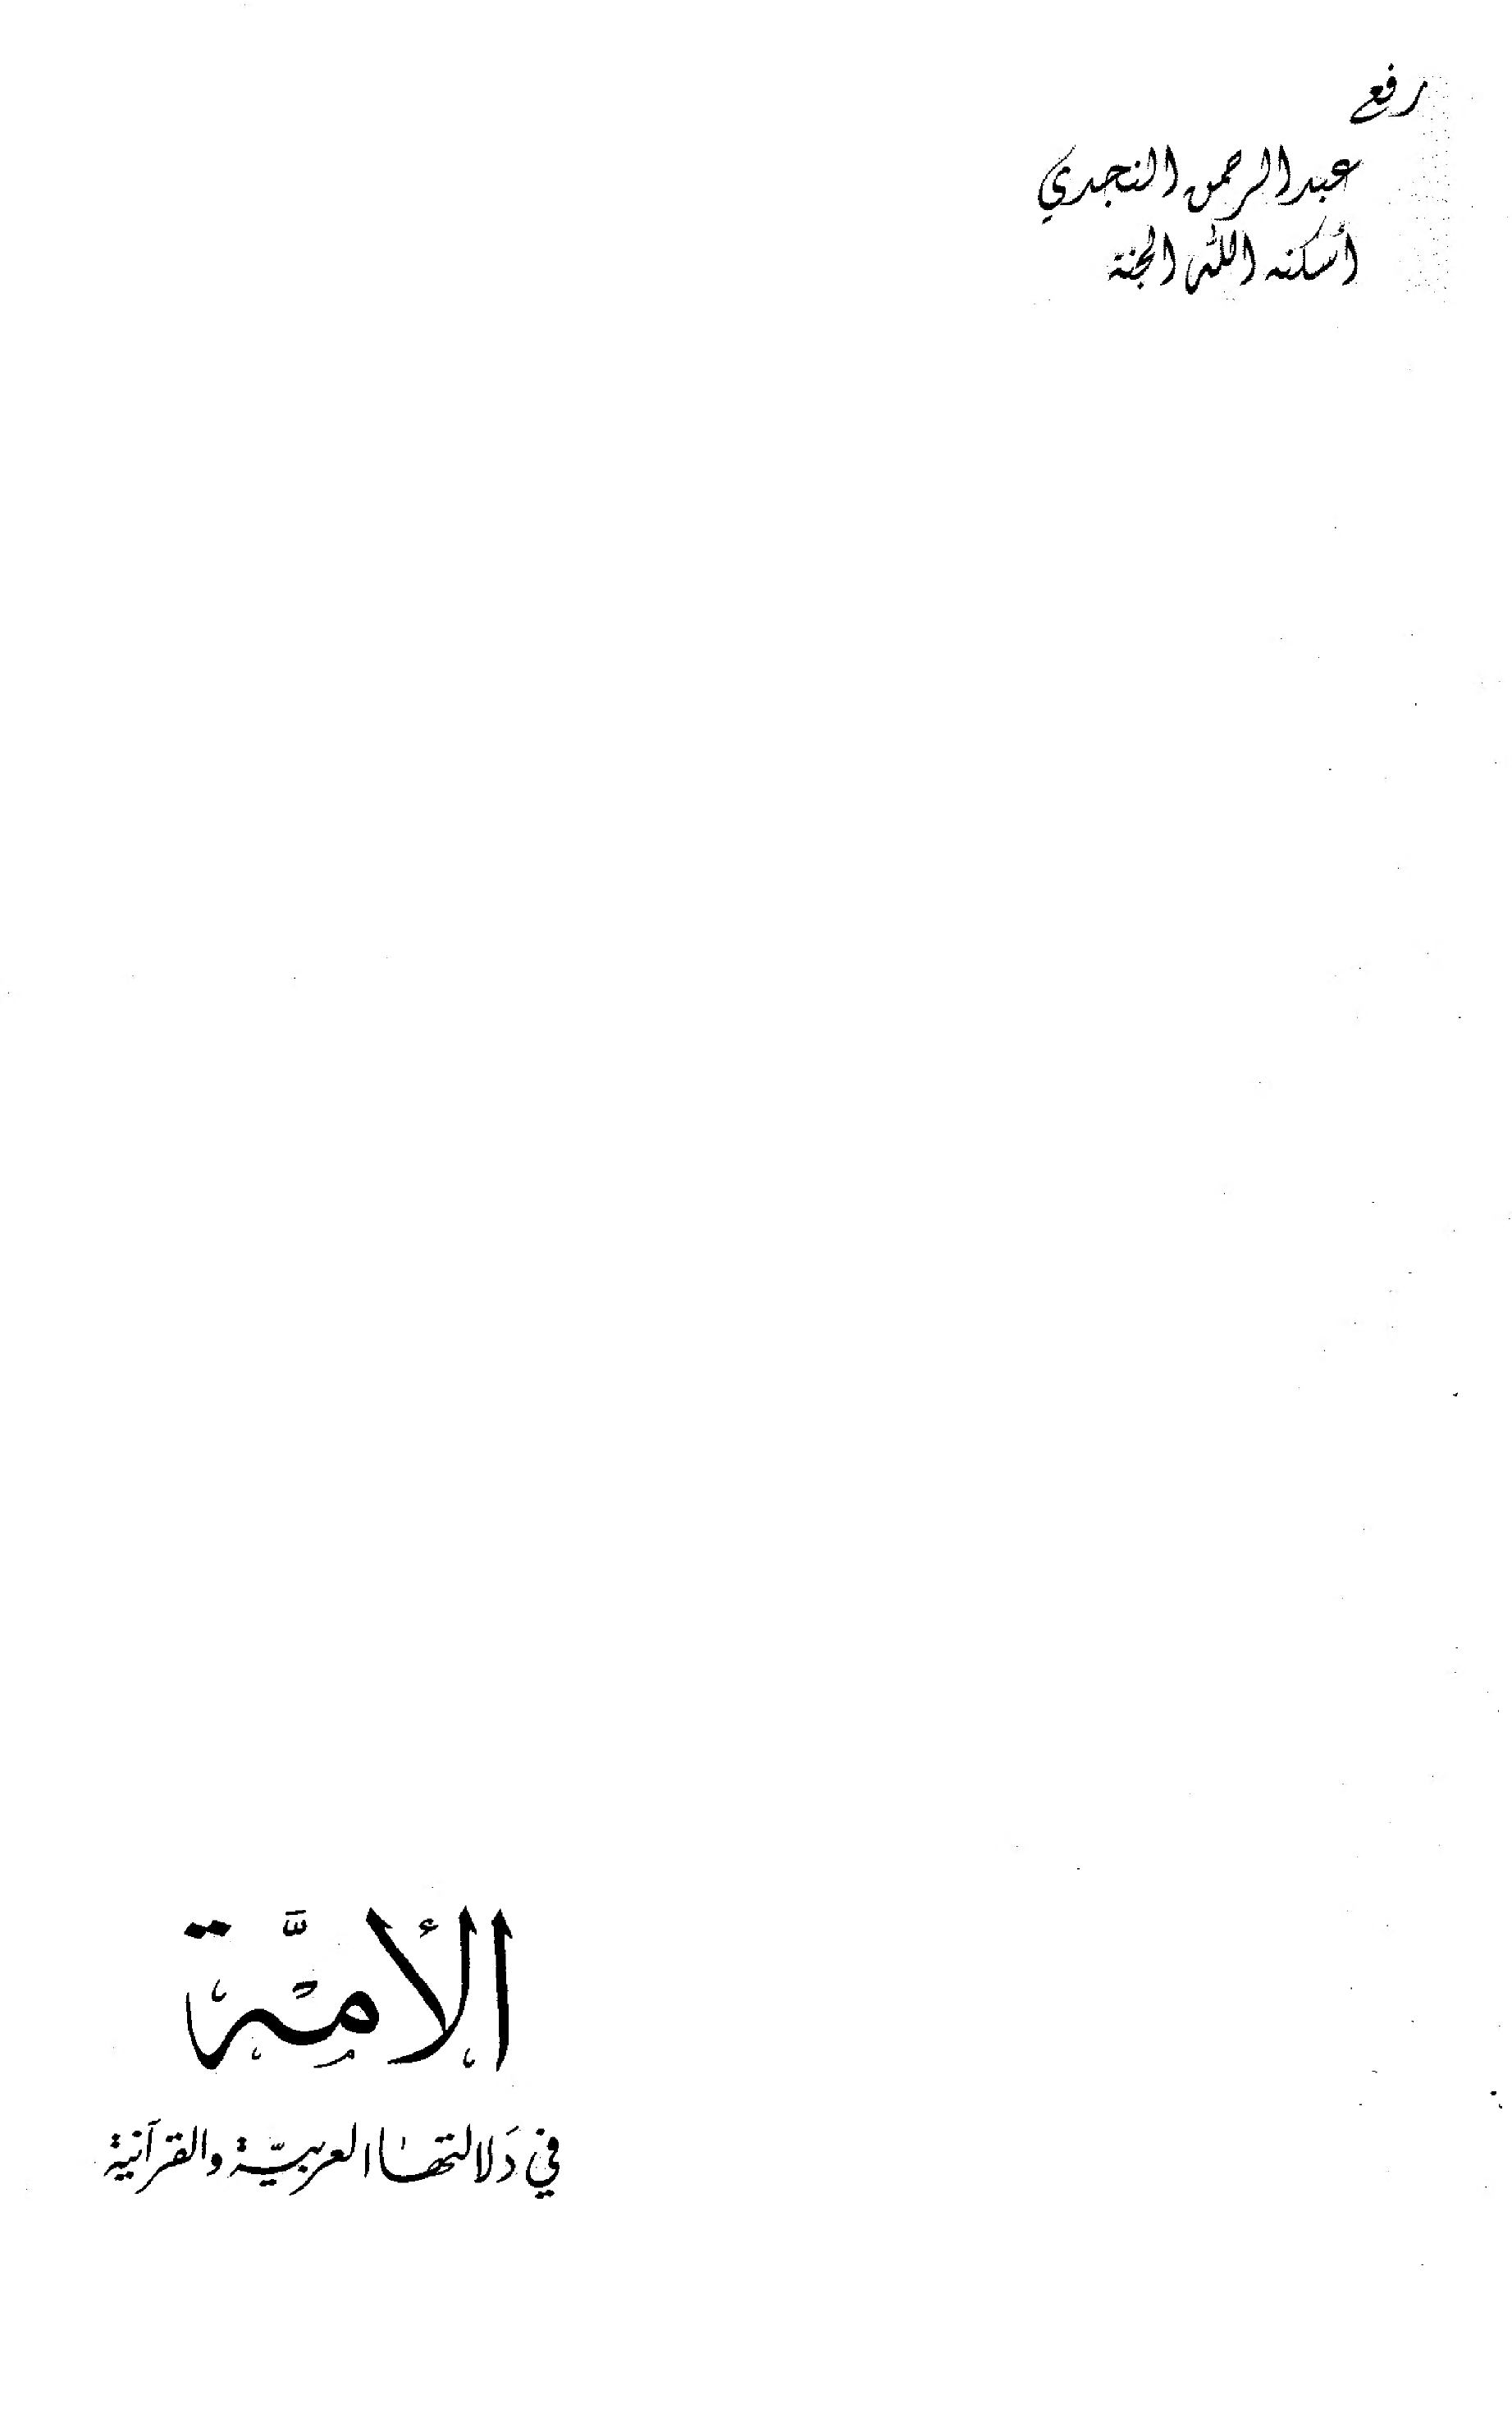 رفع
عبد الرحمن النجدي
أسكنه الله الجنة
الأمَّة
في دَلالتها العربيّة والقرآنية